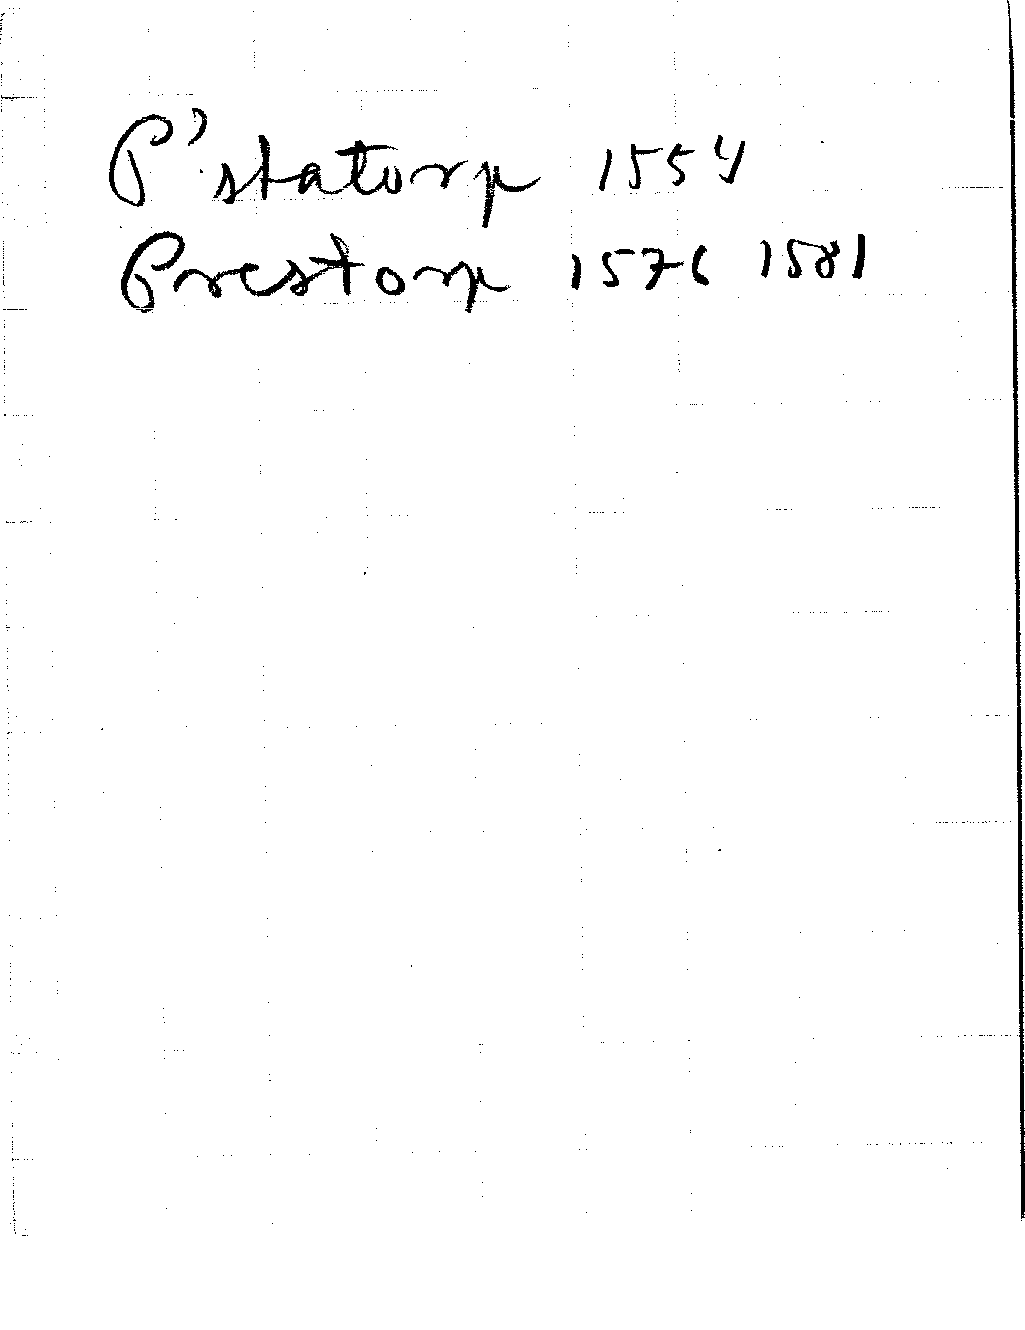 P'statorp 1554
Prestorp 1576 1581